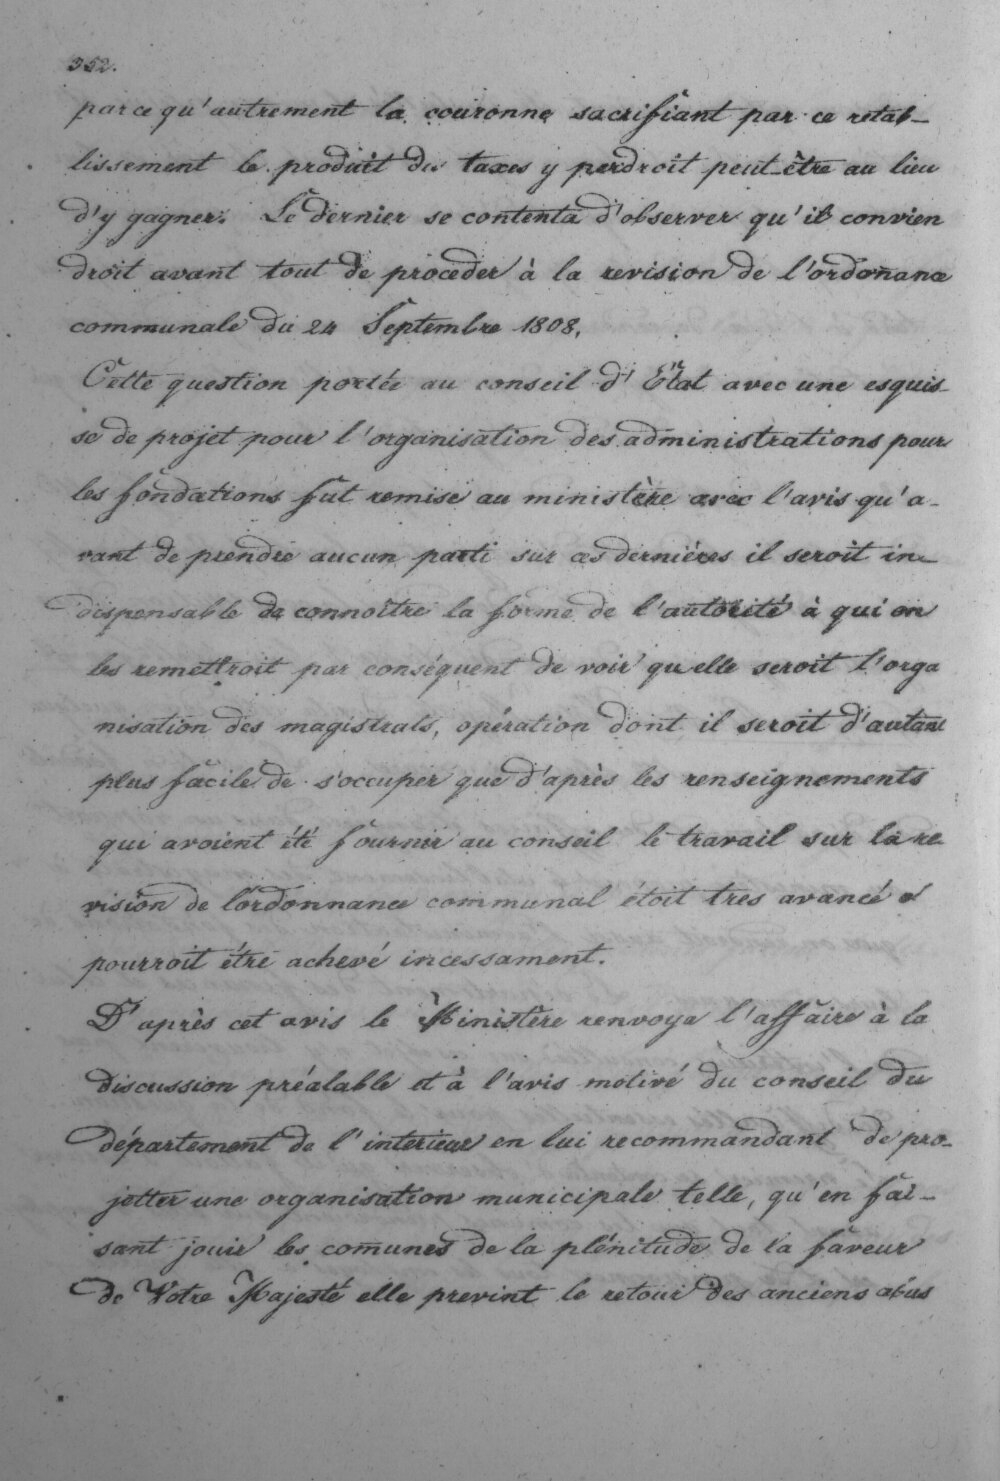 352.
parce qu'autrement la couronne sacrifiant par ce retab-
lissement le produit des taxes y perdroit peut-être au lieu
d'y gagner. Le dernier se contenta d'observer qu'il convien
droit avant tout de proceder à la revision de l'ordonance
communale du 24 Septembre 1808.
Cette question portée au conseil d'Etat avec une esquis-
se de projet pour l'organisation des administrations pour
les fondations fut remise au ministère avec l'avis qu'a-
vant de prendre aucun parti sur ces dernières il seroit in-
dispensable de connoître la forme de l'autorité à qui on
les remettroit par conséquent de voir qu'elle seroit l'orga
nisation des magistrats, opération dont il seroit d'autant
plus facile de s'occuper que d'après les renseignements
qui avoient été fournir au conseil le travail sur la re-
vision de l'ordonnance communal étoit tres avancé et
pourroit être achevé incessament.
D'après cet avis le Ministère renvoya l'affaire à la
discussion préalable et à l'avis motivé du conseil du
département de l'interieur en lui recommandant de pro-
jetter une organisation municipale telle, qu'en fai-
sant jouir les comunes de la plénitude de la faveur
de Votre Majesté elle prevint le retour des anciens abus